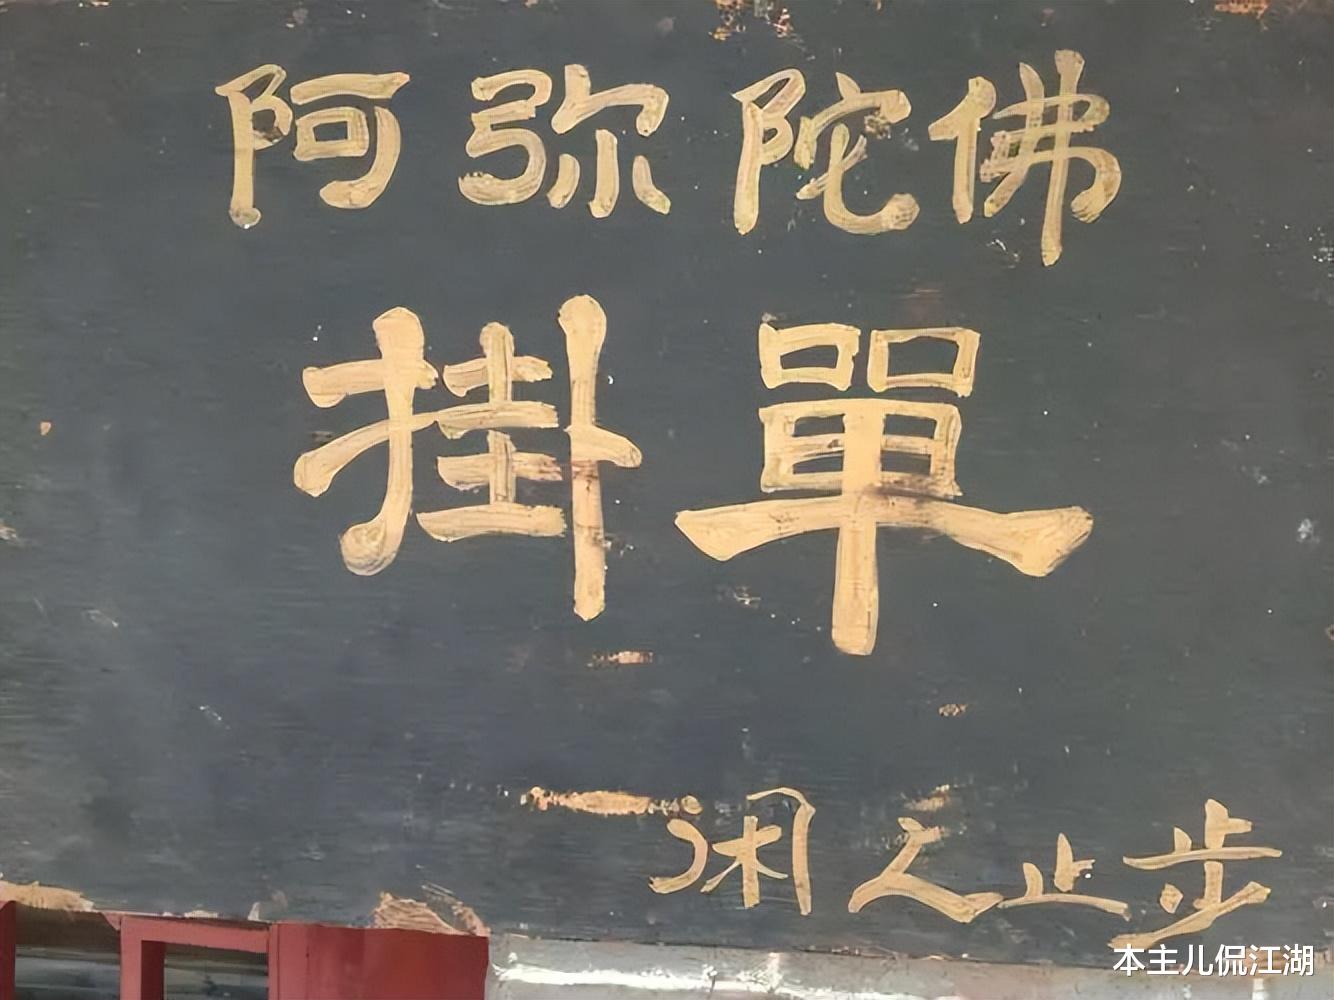 阿弥陀佛
掛單
闲人止步
本主儿侃江湖